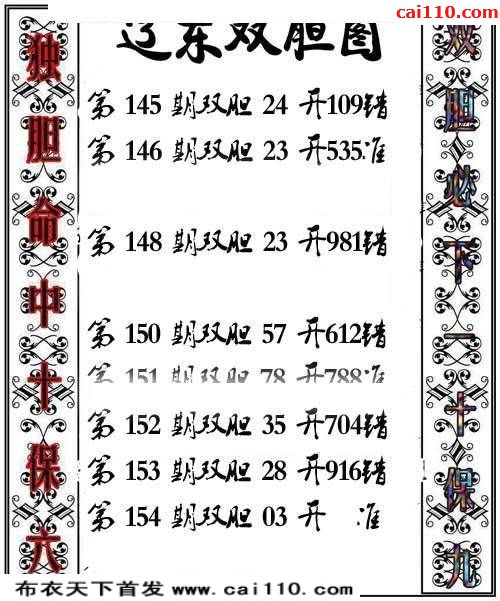 cai110.com
辽东双胆图
独胆命中十保六
双胆必下一十保九
第 145 期双胆 24 开109错
第 146 期双胆 23 开535准
第 148 期双胆 23 开981错
第 150 期双胆 57 开612错
第 151 期双胆 78 开788准
第 152 期双胆 35 开704错
第 153 期双胆 28 开916错
第 154 期双胆 03 开 准
布衣天下首发 www.cai110.com